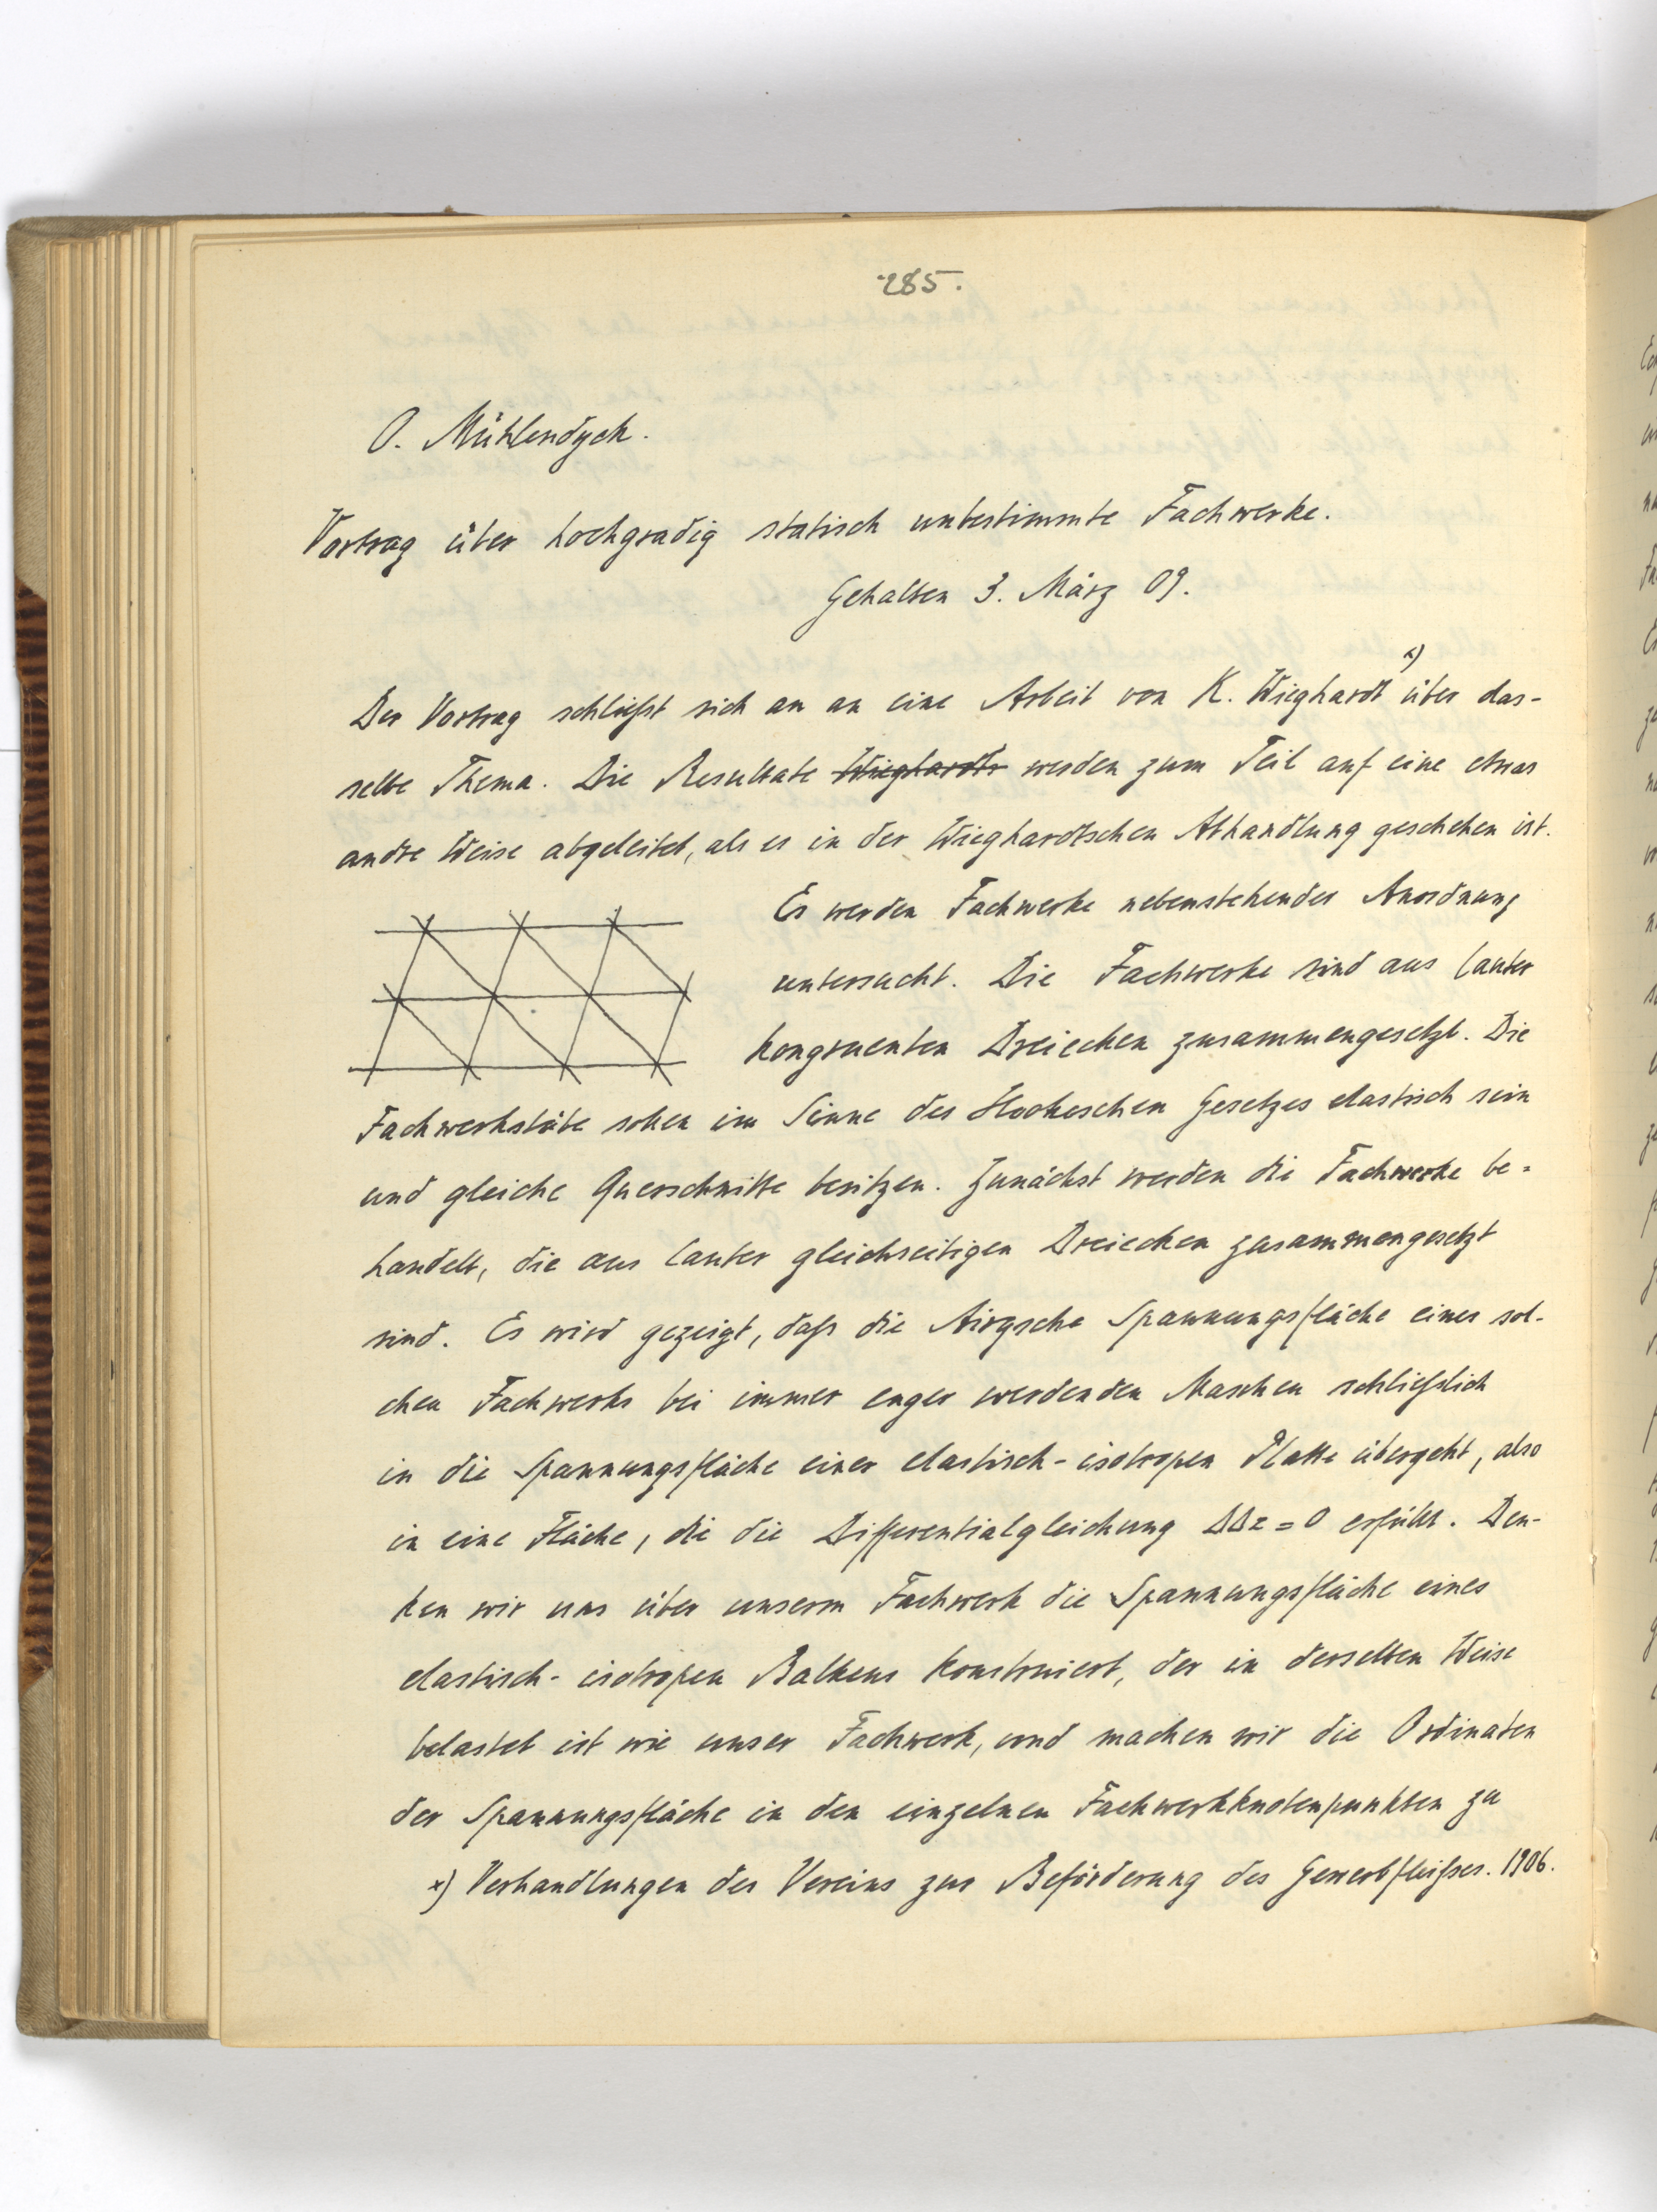 285.
O. Mühlendyck.
Vortrag über hochgradig statisch unbestimmte Fachwerke.
Gehalten 3. März 09.
Der Vortrag schließt sich an an eine Arbeit von K. Wieghardt x) über das-
selbe Thema. Die Resultate Wieghardts werden zum Teil auf eine etwas
andre Weise abgeleitet, als es in der Wieghardtschen Abhandlung geschehen ist.
Es werden Fachwerke nebenstehender Anordnung
untersucht. Die Fachwerke sind aus lauter
kongruenten Dreiecken zusammengesetzt. Die
Fachwerkstäbe sollen im Sinne des Hookeschen Gesetzes elastisch sein
und gleiche Querschnitte besitzen. Zunächst werden die Fachwerke be-
handelt, die aus lauter gleichseitigen Dreiecken zusammengesetzt
sind. Es wird gezeigt, daß die Airysche Spannungsfläche eines sol-
chen Fachwerks bei immer enger werdenden Maschen schließlich
in die Spannungsfläche einer elastisch-isotropen Platte übergeht, also
in eine Fläche, die die Differentialgleichung ΔΔz = 0 erfüllt. Den-
ken wir uns über unserm Fachwerk die Spannungsfläche eines
elastisch-isotropen Balkens konstruiert, der in derselben Weise
belastet ist wie unser Fachwerk, und machen wir die Ordinaten
der Spannungsfläche in den einzelnen Fachwerkknotenpunkten zu
x) Verhandlungen des Vereins zur Beförderung des Gewerbfleißes. 1906.